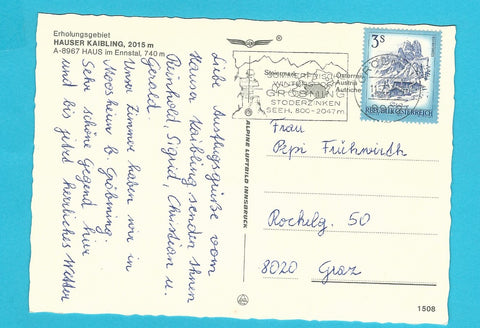 Erholungsgebiet
HAUSER KAIBLING, 2015 m
A-8967 HAUS im Ennstal, 740 m
Liebe Ausflugsgrüße vom
Hauser Kaibling senden Ihnen
Reinhold, Sigrid, Christian u.
Gerald.
Unser Zimmer haben wir in
Moosheim b. Gröbming.
Sehr schöne Gegend hier
und bis jetzt herrliches Wetter
ALPINE LUFTBILD INNSBRUCK
Steiermark
Österreich
Austria
SOMMERFRISCHE
WINTER
GRÖBMING
STODERZINKEN
SEEH. 800-2047 m
3 S
REPUBLIK ÖSTERREICH
Frau
Pepi Frühwirth
Rochelg. 50
8020 Graz
1508